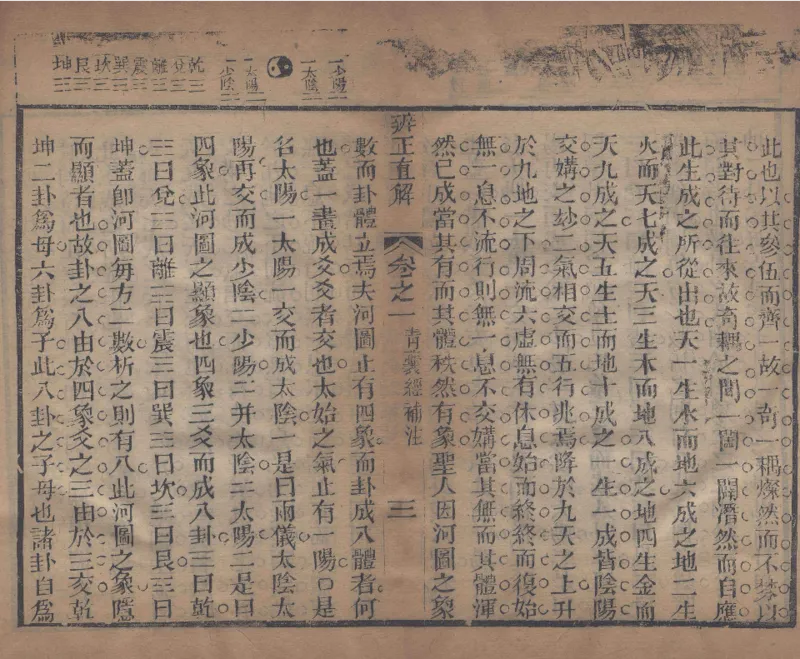 一少陽二
一太陰二
一太陽二
一少陰二
乾☰
兌☱
離☲
震☳
巽☴
坎☵
艮☶
坤☷
此也以其參伍而齊一故一奇一耦燦然而不棼以
其對待而往來故奇耦之間一闔一闢潛然而自應
此生成之所從出也天一生水而地六成之地二生
火而天七成之天三生木而地八成之地四生金而
天九成之天五生土而地十成之一生一成皆陰陽
交媾之玅二氣相交而五行兆焉降於九天之上升
於九地之下周流六虛無有休息始而終終而復始
無一息不流行則無一息不交媾當其無而其體渾
然已成當其有而其體秩然有象聖人因河圖之象
辨正直解 卷之一 青囊經補注 三
數而卦體立焉夫河圖止有四象而卦成八體者何
也蓋一畫成爻爻者交也太始之氣止有一陽〇是
名太陽一太陽一交而成太陰一是曰兩儀太陰太
陽再交而成少陰二少陽二并太陰二太陽二是曰
四象此河圖之顯象也四象三爻而成八卦☰曰乾
☱曰兌☲曰離☳曰震☴曰巽☵曰坎☶曰艮☷曰
坤蓋卽河圖每方二數析之則有八此河圖之象隱
而顯者也故卦之八由於四象爻之三由於三交乾
坤二卦爲母六卦爲子此八卦之子母也諸卦自爲